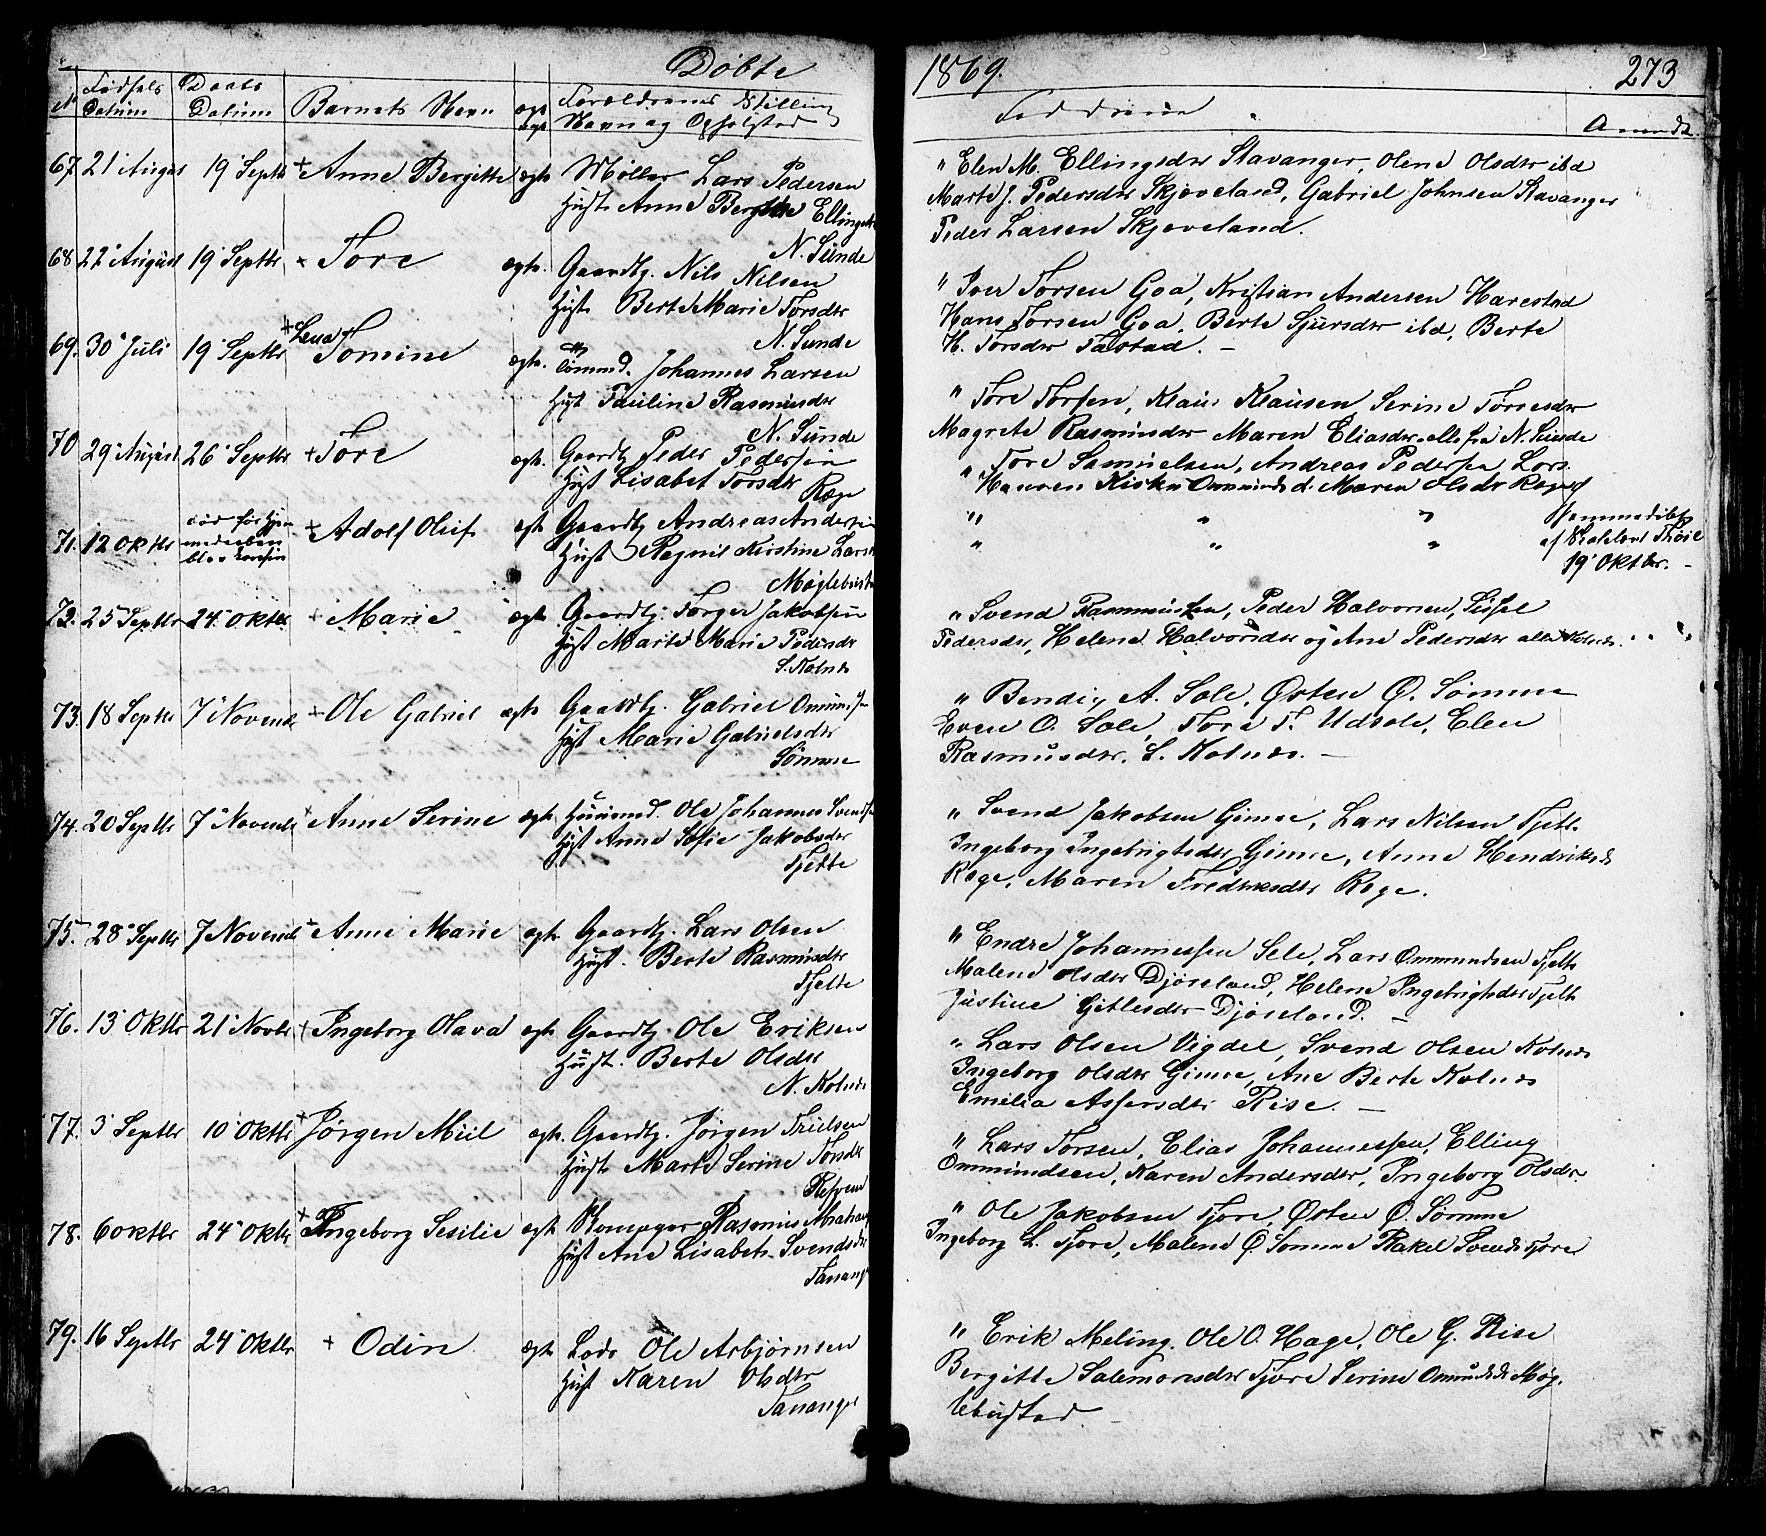 Døbte
1869.
273
No
Fødsels Datum
Daabs Datum
Barnets Navn
egte uegt
Forældrenes Stilling
Navn og Opholsted
Faddrene
Anmrk.
67. 21 August 19 Septbr + Anne Bergitte egte Møller Lars Pedersen
Hust Anne Bergitte Ellingsdr
N. Sunde
" Elen M. Ellingsdtr Stavanger, Olene Olsdtr ibd
Marte J. Pedersdtr Skjeveland, Gabriel Johnsen Stavanger
Peder Larsen Skjeveland.
68 22 August 19 Septbr + Tore egte. Gaardbr. Nils Nilsen
Hust Berte Marie Torsdtr
N. Sunde
" Iver Torsen Goa, Kristian Andersen Harestad
Hans Torsen Goa, Berte Sjursdtr ibd, Berte
H. Torsdtr Tastad. —
69. 30 Juli 19 Septbr + Lena Tomine egte. Tommd. Johannes Larsen
Hust Pauline Rasmusdtr
N. Sunde
" Tore Torsen, Klaus Klausen Serine Torresdtr
Magrete Rasmusdtr Maren Eliasdtr alle fra N. Sunde
70 29 August 26 Septbr + Tore egte. Gaardbr Peder Pedersen
Hust Lisabet Torsdtr
Røge
" Tore Samuelsen, Andreas Pedersen Lars
Hansen Kirstin Ommundsd. Maren Olsdr Røge
71. 12 Oktbr død før hjemmedaaben blev konfir + Adolf Oluf egte Gaardbr Andreas Anders
Hust Ragnil Kirstine Lars
Møglebust
" " "
" " "
hjemmedøbt
af Skolelærer Thøie
19 Oktbr. —
72. 25 Septbr 24 Oktbr + Marie egte Gaardbr. Torger Jakobsen
Hust Marte Marie Pedersdr
S. Kolnes
" Svend Rasmussen, Peder Halvorsen, Sissel
Pedersdtr, Helene Halvorsdtr og Ane Pedersdtr alle Kolnes.
73. 18 Septbr 7 Novemb + Ole Gabriel egte Gaardbr. Gabriel Omunds
Hust Marie Gabrielsdr
Sømme
" Bendix A. Sole, Østen O. Sømme
Even O. Sole, Tore T. Udsole, Elen
Rasmusdtr. S. Kolnes. —
74. 20 Septbr 7 Novemb + Anne Serine egte Huusmd. Ole Johannes Svends
Hust Anne Sofie Jakobsdtr
Tjelte
" Svend Jakobsen Gimre, Lars Nilsen Tjelte
Ingeborg Ingebrigtsdtr Gimre, Anne Hendriksd
Røge, Maren Fredriksdtr Røge.
75. 28 Septbr 7 Novemb + Anne Marie egte Gaardbr. Lars Olsen
Hust. Berte Rasmusdtr
Tjelte
" Endre Johannessen Sele, Lars Ommundsen Tjelte
Malene Olsdtr Djøseland, Helene Ingebrigtsdtr Tjelte
Justine Getlesdtr Djøseland. —
76. 13 Oktbr 21 Novbr + Ingeborg Olava egte Gaardbr. Ole Eriksen
Hust. Berte Olsdtr
N. Kolnes
" Lars Olsen Vigdel, Svend Olsen Kolnes
Ingeborg Olsdtr Gimre, Ane Berte Kolnes
Emilia Assersdtr Rise. —
77. 3 Septbr 10 Oktbr + Jørgen Miil egte. Gaardbr. Jørgen
Hust Marte Serine Torsdtr
Refsnes
" Lars Torsen, Elias Johannessen, Elling
Ommundsen, Karen Andersdtr, Ingeborg Olsdtr
78. 6 Oktbr 24 Oktbr + Ingeborg Sesilie egte Skomager Rasmus Abraham
Hust Ane Lisabeth Svendsdtr
Tananger
" Ole Jakobsen Tjore, Østen O. Sømme
Ingeborg L. Tjore, Malene O Sømme Rakel Svendsd Tjore
79. 16 Septbr 24 Oktbr + Odin egte Lods Ole Asbjørnsen
Hust Karen Olsdtr
Tananger
" Erik Meling, Ole O. Hage, Ole G. Rise
Bergitte Salemonsdtr Tjore Serine Omundsdr Møg-
lebustad. —